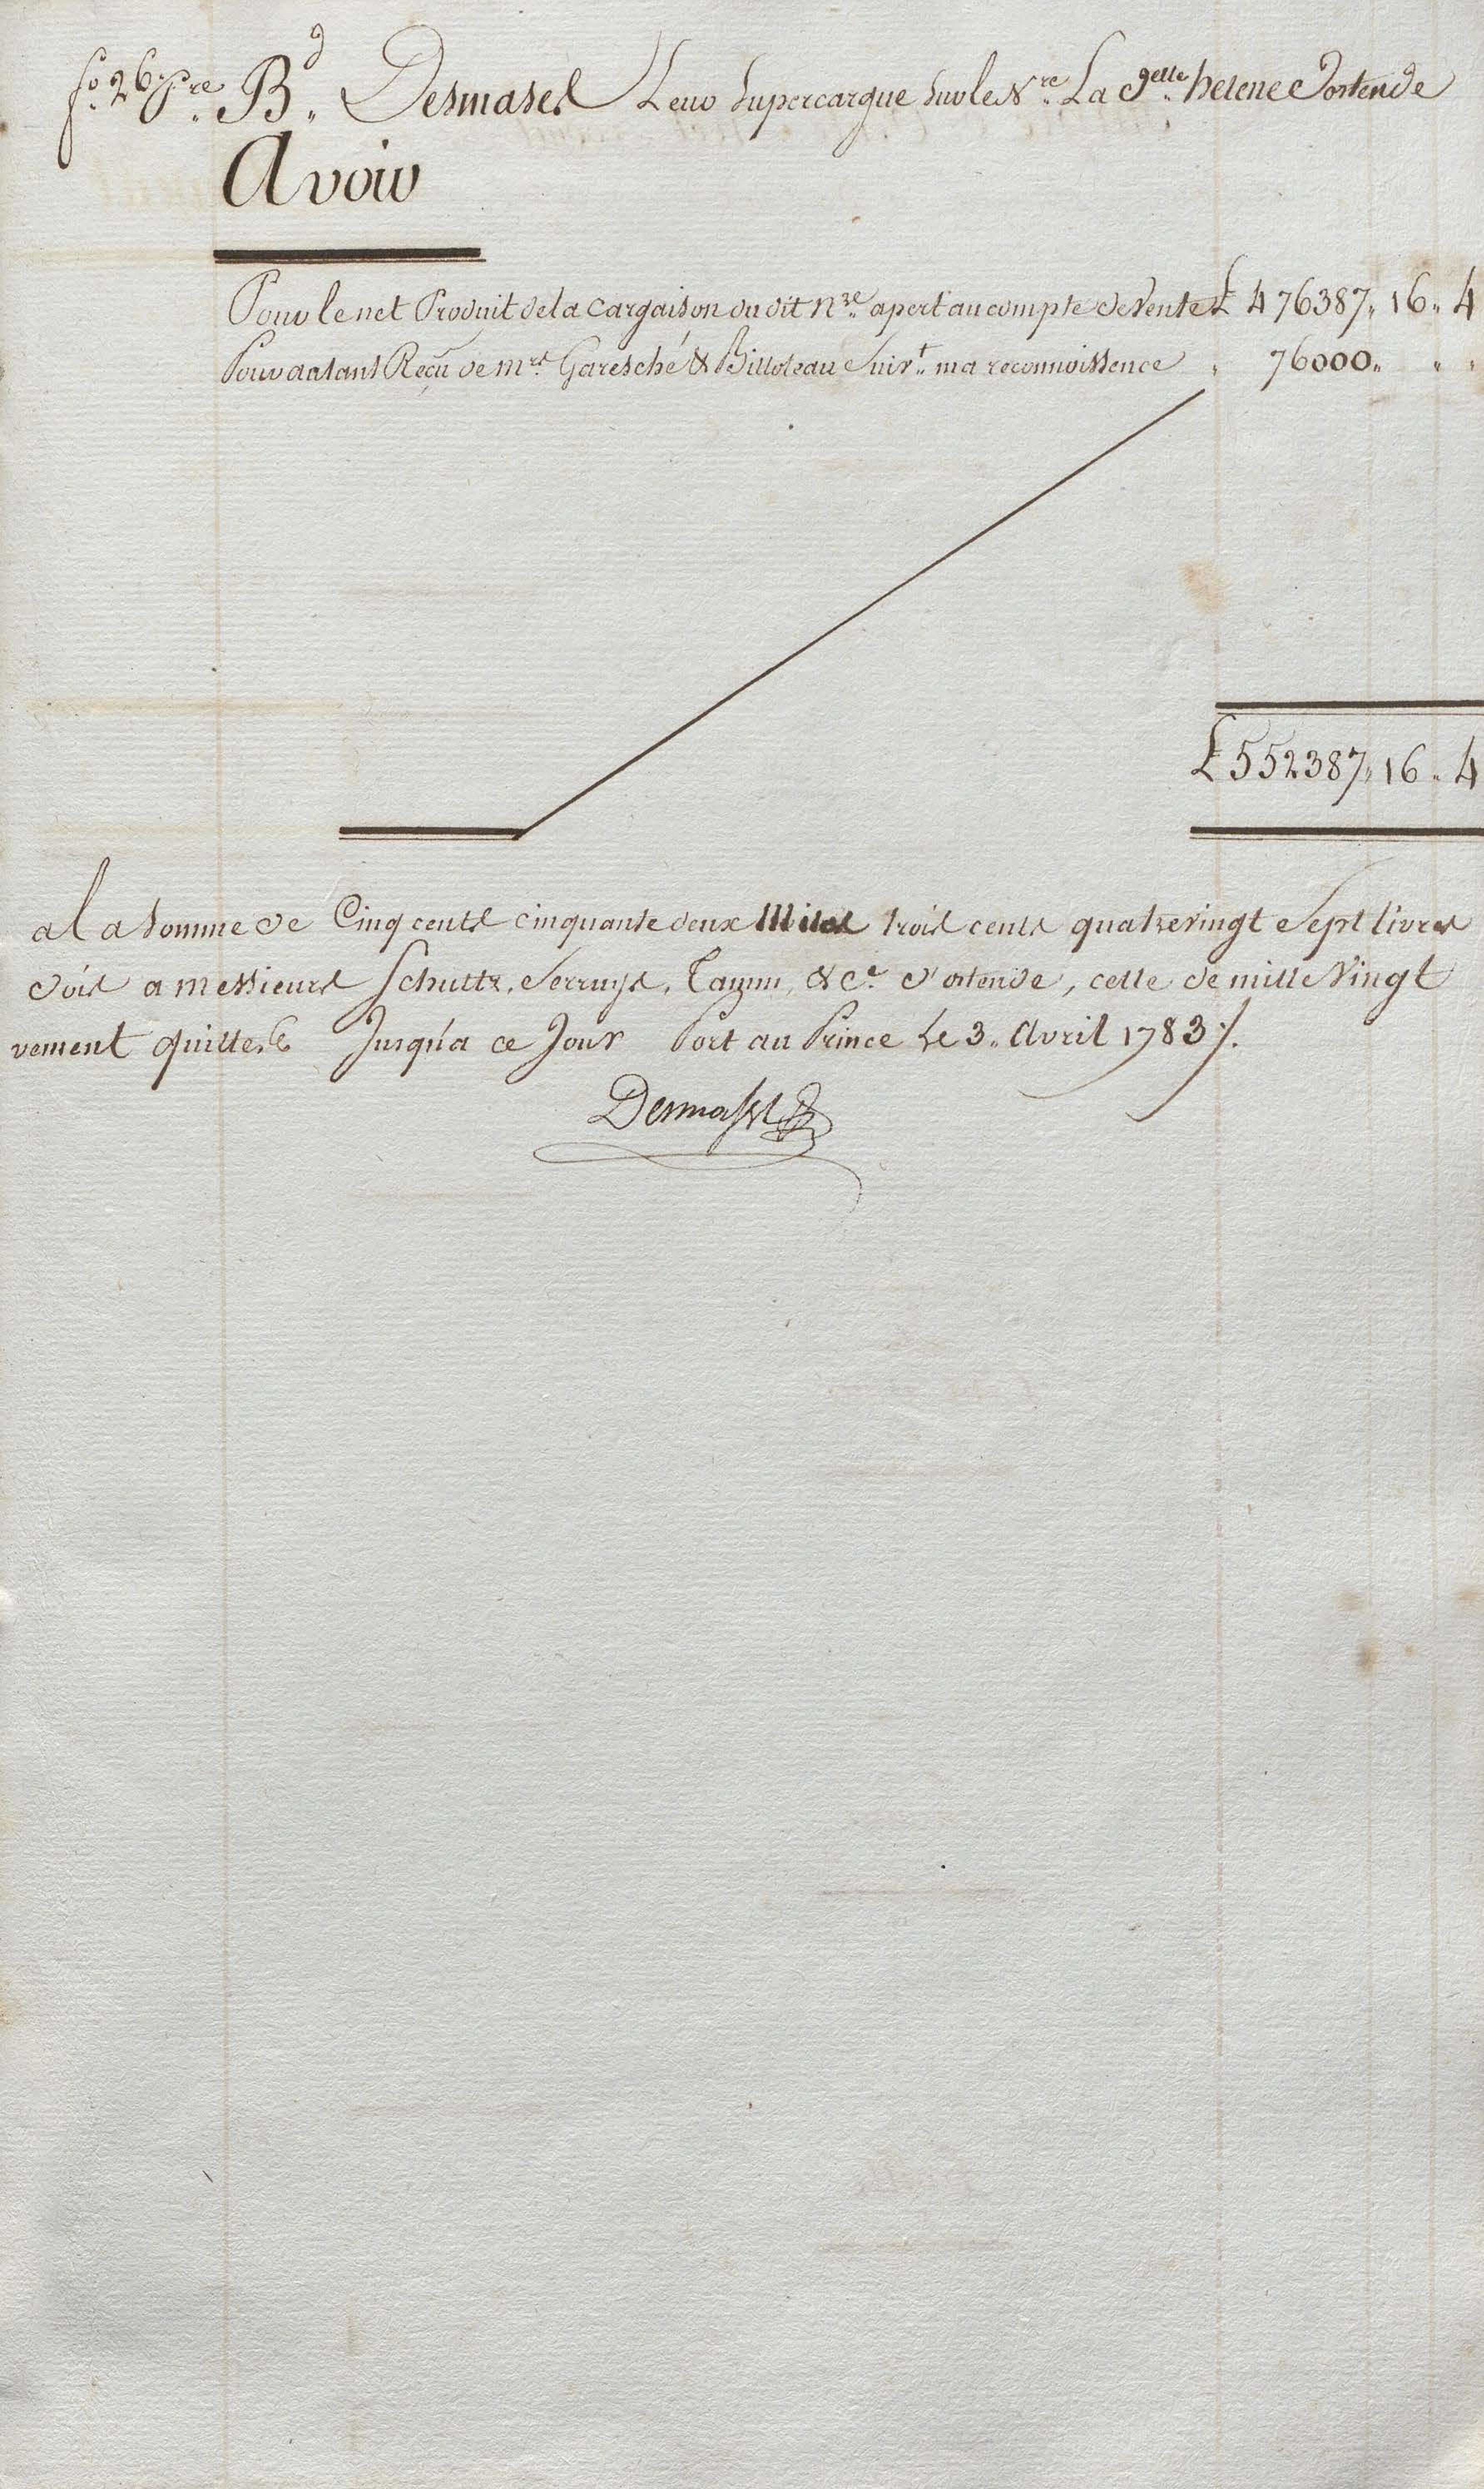 fo. 26 Pre. Bd. Desmases Leur Supercargue sur le Nre. La Delle. helene d'ostende
Avoir
Pour le net Produit de la Cargaison du dit Nre. apert au compte de Vente £ 476387 " 16 " 4
Pour autant Reçu de mrs. Garesché & Billoteau Suivt. ma reconnoissence " 76000 " " "
£ 552387 " 16 " 4
a la Somme de Cinq cents cinquante deux Milles trois cents quatrevingt Sept livres
dois a Messieurs Schuttz, Serruys, & Ce. d'ostende, celle de mille Vingt
vement quittes Jusqu'a ce Jour Port au Prince Le 3. Avril 1783 ./.
Desmases